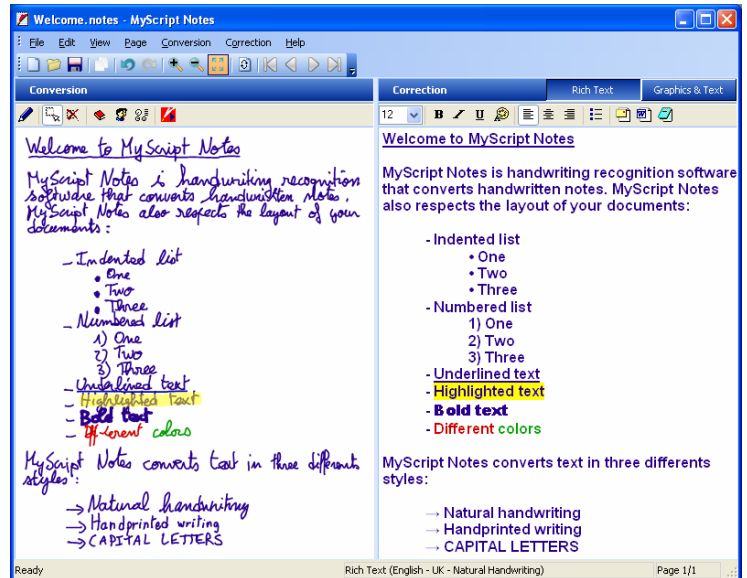 Welcome.notes - MyScript Notes
File Edit View Page Conversion Correction Help
Conversion
Welcome to MyScript Notes
MyScript Notes is handwriting recognition
software that converts handwritten notes.
MyScript Notes also respects the layout of your
documents:
- Indented list
• One
• Two
• Three
- Numbered list
1) One
2) Two
3) Three
- Underlined text
- Highlighted text
- Bold text
- Different colors
MyScript Notes converts text in three different
styles:
→ Natural handwriting
→ Handprinted writing
→ CAPITAL LETTERS
Correction Rich Text Graphics & Text
12 B I U
Welcome to MyScript Notes
MyScript Notes is handwriting recognition software
that converts handwritten notes. MyScript Notes
also respects the layout of your documents:
- Indented list
• One
• Two
• Three
- Numbered list
1) One
2) Two
3) Three
- Underlined text
- Highlighted text
- Bold text
- Different colors
MyScript Notes converts text in three differents
styles:
→ Natural handwriting
→ Handprinted writing
→ CAPITAL LETTERS
Ready Rich Text (English - UK - Natural Handwriting) Page 1/1